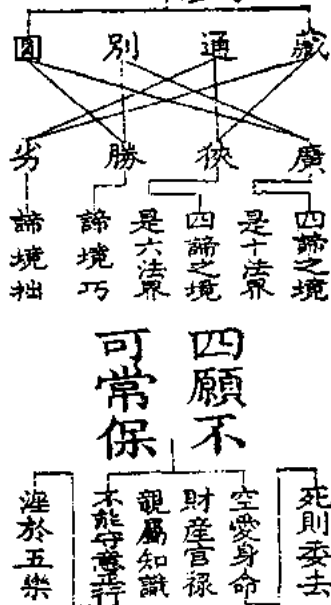 藏 通 別 圓
廣 狹 勝 劣
四諦之境
是十法界
四諦之境
是六法界
諦境巧
諦境拙
四願不
可常保
死則委去
空愛身命
財産官禄
親屬知識
不能守善正行
淫於五樂